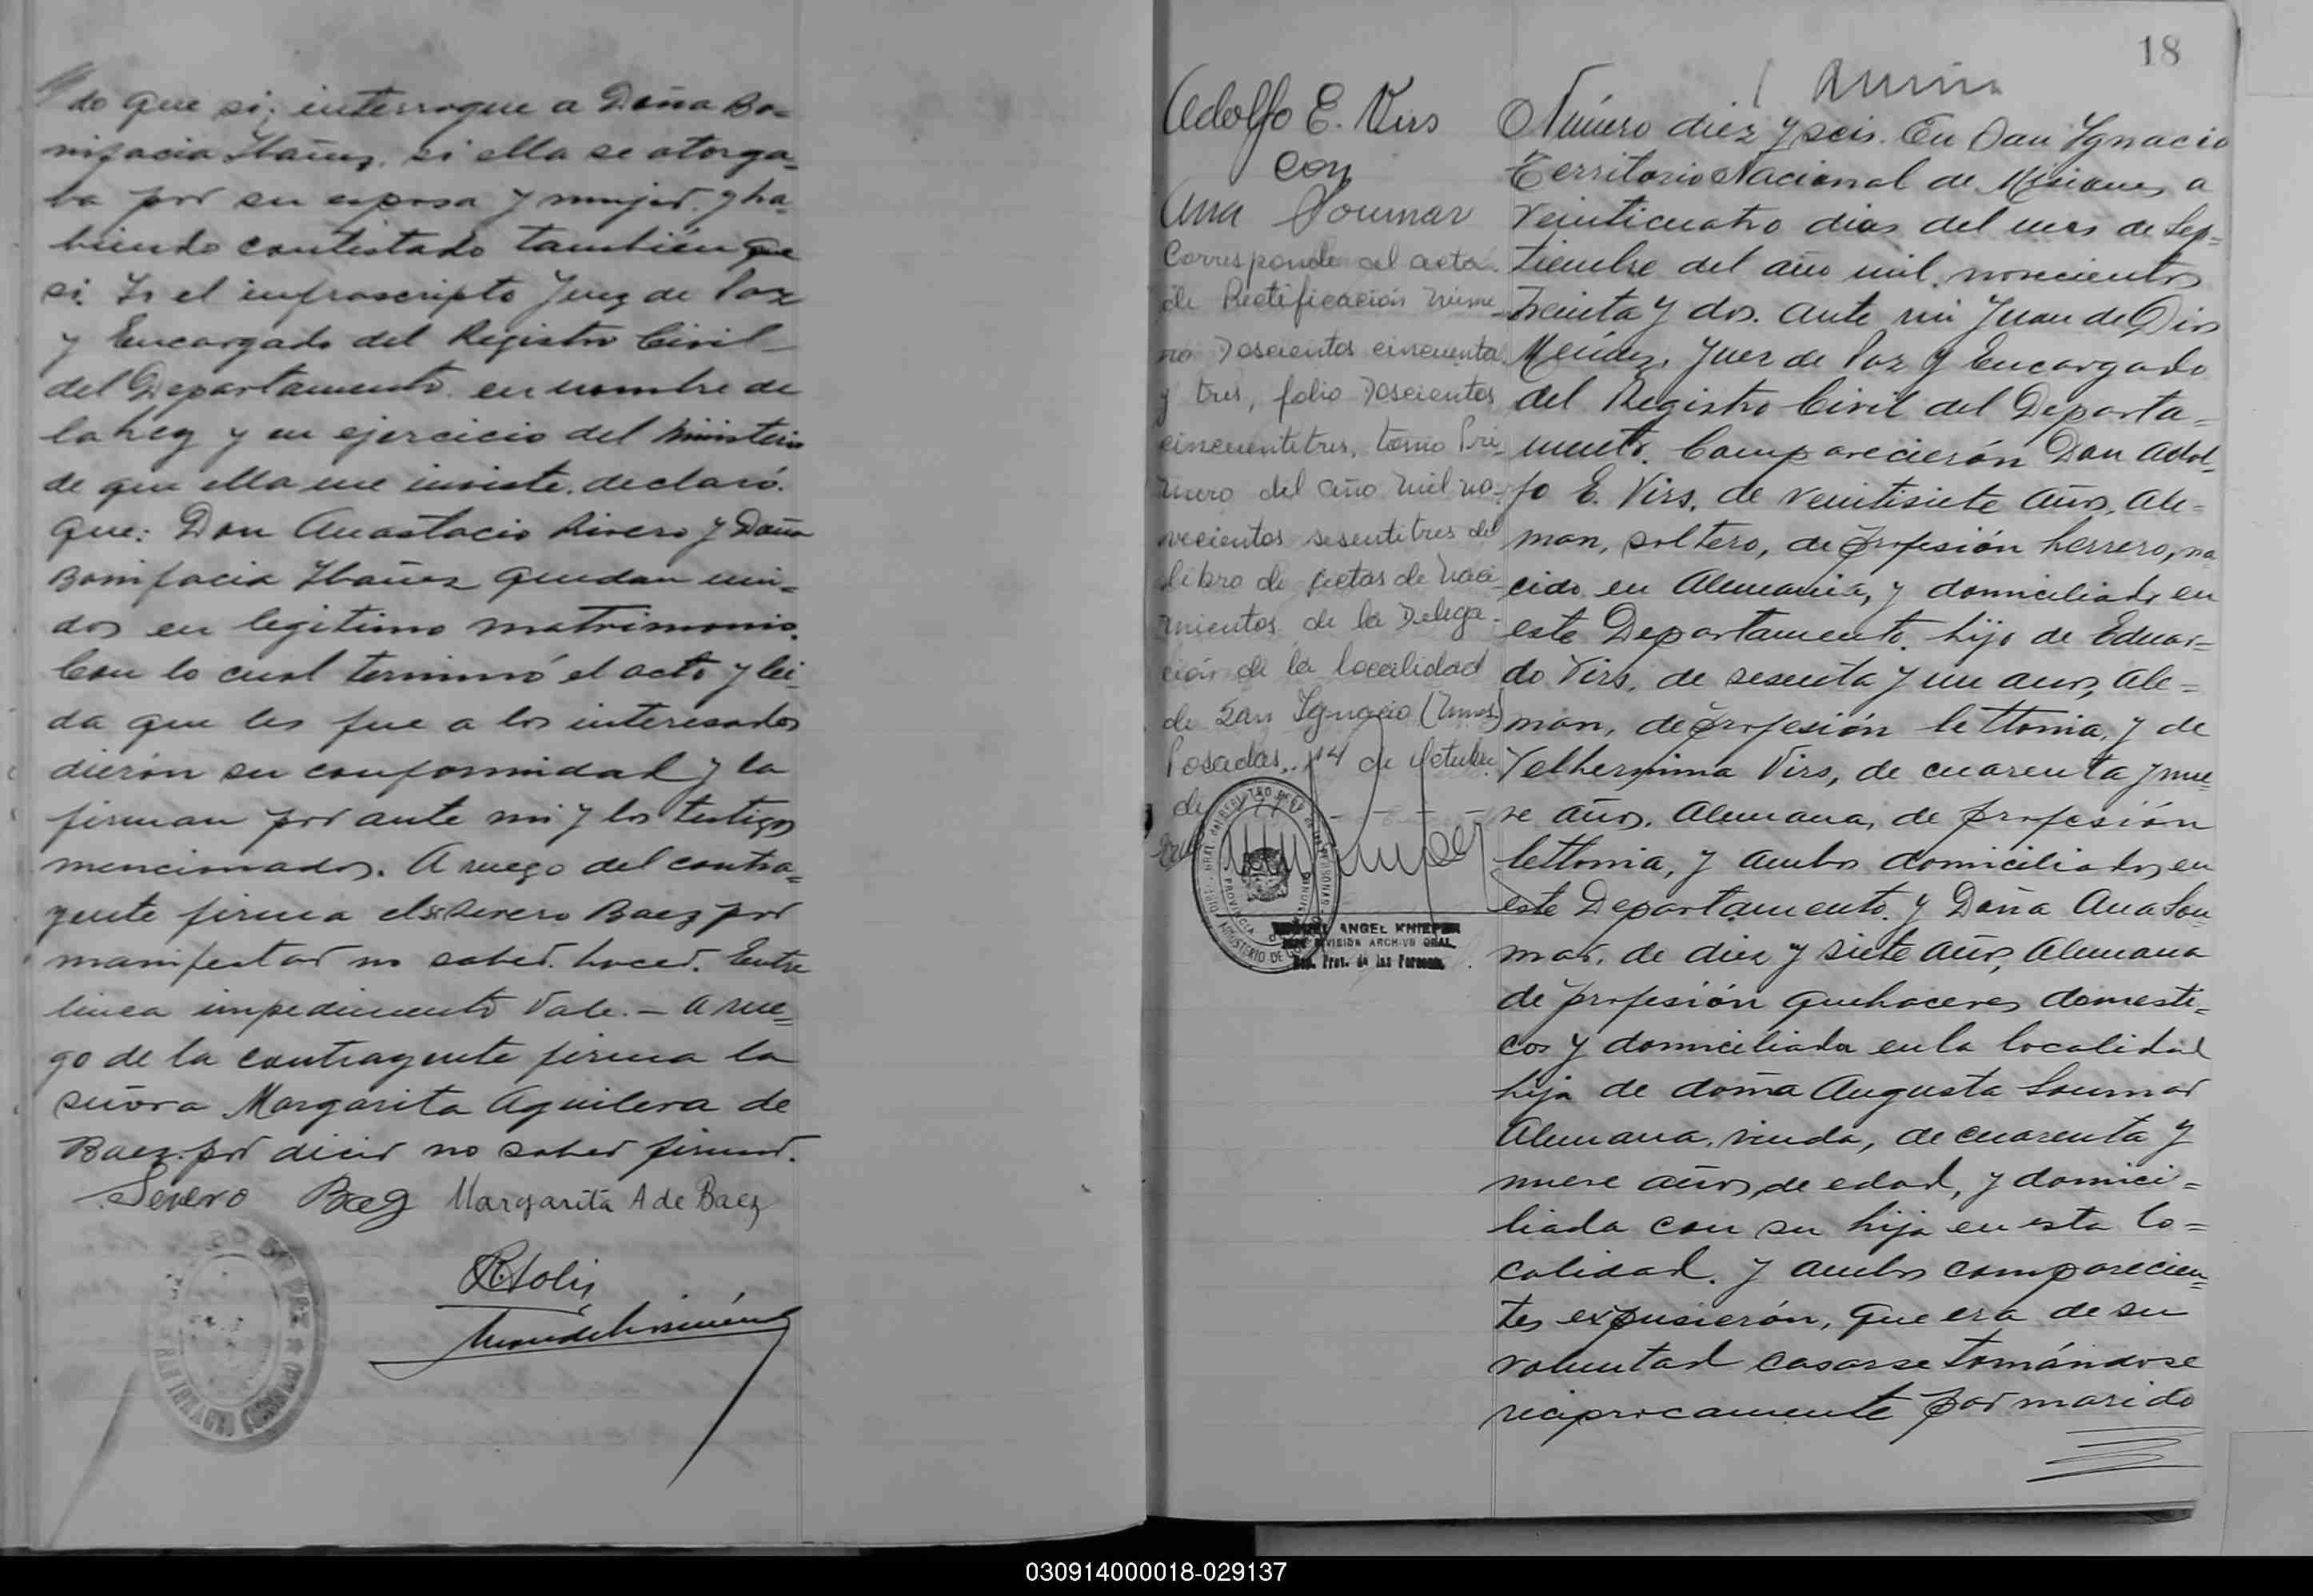 do que si; interrogue a Doña Bo=
nifacia Ibañez, si ella se otorga=
ba por su esposa y mujer, y ha=
biendo contestado también que
si. Yo el infrascripto Juez de Paz
y Encargado del Registro Civil
del Departamento en nombre de
la Ley y en ejercicio del ministerio
de que ella me inviste, declaró.
que: Don Anastacio Rivero y Doña
Bonifacia Ibañez quedan uni=
dos en legitimo matrimonio.
Con lo cual terminó el acto y lei-
da que les fue a los interesados
dierón su conformidad y la
firman por ante mi y los testigos
mencionados. A ruego del contra=
yente firma el Sr Severo Baez por
manifestar no saber hacer. Entre
linea impedimento Vale. - A rue=
go de la contrayente firma la
señora Margarita Aguilera de
Baez por decir no saber firmar.
Severo Baez Margarita A de Baez
18
Adolfo E. Virs
con
Ana Soumar
Corresponde al acta
de Rectificación núme-
ro Doscientos cincuenta
y tres, folio Doscientos
cincuentitres, tomo Pri-
mero del año mil no-
vecientos sesentitres del
libro de actas de Naci-
mientos de la Delega-
ción de la localidad
de San Ignacio (Mnes)
Posadas, 14 de Octubre
de
ANGEL KNIEPER
DIVISION ARCHIVO GRAL.
Reg. Prov. de las Personas
Número diez y seis. En San Ygnacio
Territorio Nacional de Misiones, a
veinticuatro dias del mes de Sep=
tiembre del año mil novecientos
treinta y dos. ante mi Juan de Dios
Meńdez, Juez de Paz y Encargado
del Registro Civil del Departa=
mento. Comparecierón Don Adol-
fo E. Virs, de veintisiete años, ale=
man, soltero, de profesión herrero, na
cido en Alemania, y domiciliado en
este Departamento. hijo de Eduar=
do Virs, de sesenta y un anos, ale=
man, de profesión lettonia, y de
Velhermina Virs, de cuarenta y nue
ve años, Alemana, de profesión
lettonia, y ambos domiciliados en
este Departamento. y Doña Ana Sou
mar, de diez y siete años, Alemana
de profesión quehaceres domesti=
cos y domiciliada en la localidad
hija de doña Augusta Soumar
Alemana, viuda, de cuarenta y
nueve años, de edad, y domici=
liada con su hija en esta lo=
calidad. y ambos comparecien=
tes expusierón, que era de su
voluntad casarse tomándose
reciprocamente por marido
030914000018-029137